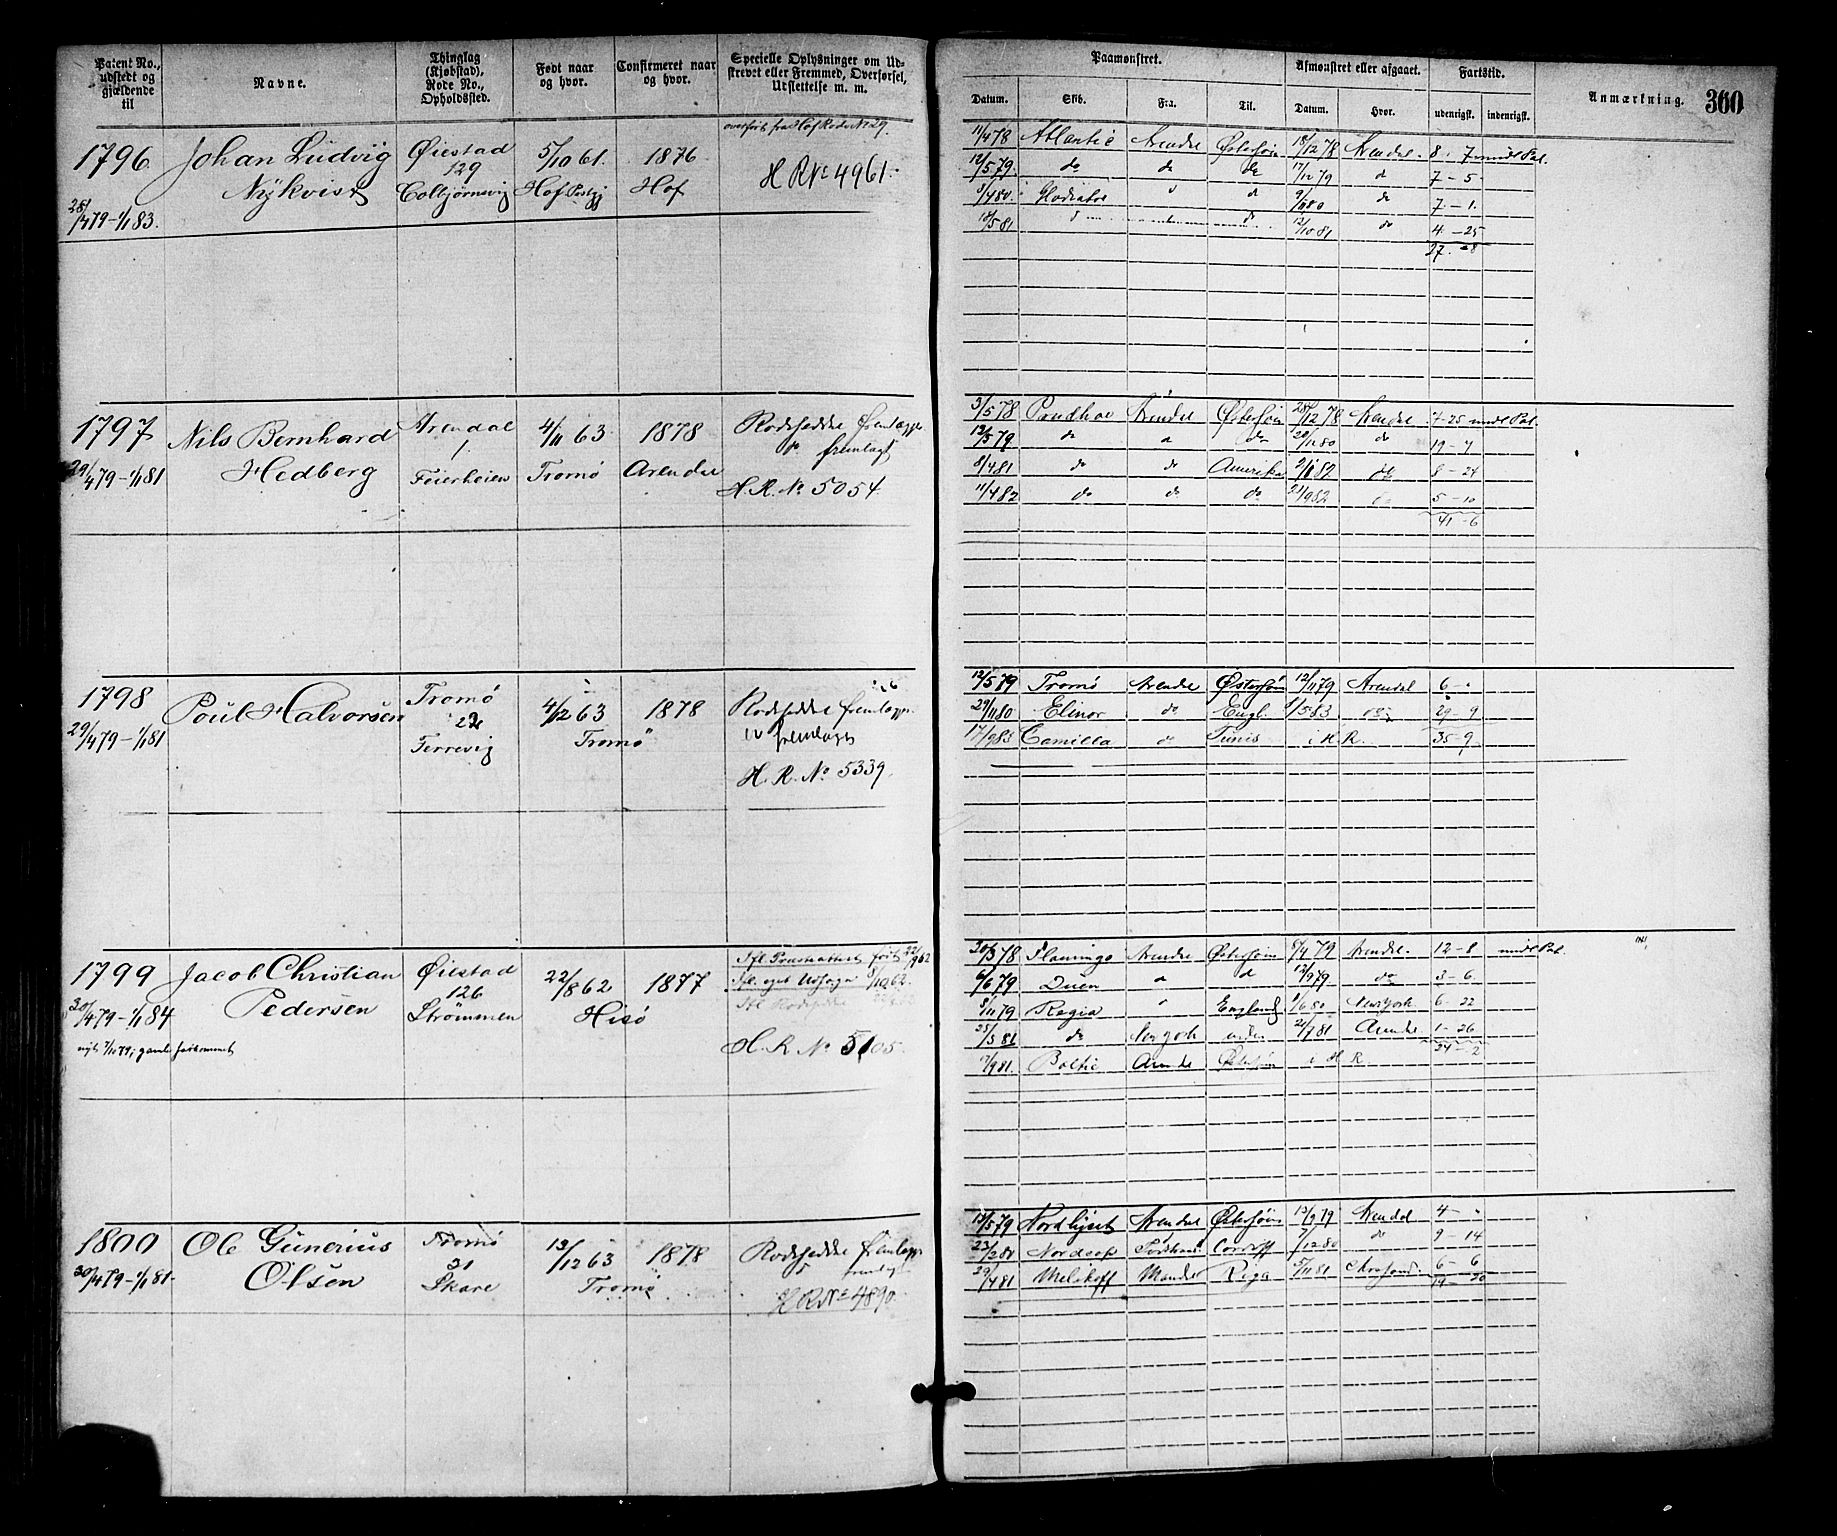 Patent No., udstedt og gjældende til
Navne.
Thinglag (Kjøbstad), Rode No., Opholdssted.
Født naar og hvor.
Confirmeret naar og hvor.
Specielle Oplysninger om Udskrevet eller Fremmed, Overførsel, Udslettelse m. m.
Paamønstret.
Afmønstret eller afgaaet.
Fartstid.
Anmærkning.
360
Datum. Skib. Fra. Til. Datum. Hvor. udenrigsk. indenrigsk.
1796. Johan Ludvig Nykvist
28/4 79 – 1/1 83.
Øiestad 129 Colbjørnsvig
5/10 61. Hof
1876 Hof
overført fra Hof Rode No 29.
H R No 4961.
11/4 78 Atlantic Arendal Østersøen 12/78 Arendal 8 . 7 midl Pat.
12/5 79 do do do 17/12 79 d 7 – 5
do 9/ 80 do 7 – 1.
18/5 81 do 12/10 81 do 4 – 25
27 – 8
1797 Nils Bernhard Hedberg
29/4 79 – 1/1 81
Arendal 1. Feierheien
4/11 63 Tromø
1878 Arendal
Rodsedde fremlægges
fremlagt
H. R. No 5054
3/5 78 Arendal Østersøen 28/12 78 Arendal 7–25 midl Pat.
12/5 79 do do 80 do 19 – 7
8/4 81 do do Amerika 82 do 8 – 24
11/4 82 do do do 9 82 do 5 – 10
41 – 6
1798 Poul Halvorsen
29/4 79 – 1/1 81
Tromø 22 Terrevig
4/12 63 Tromø
1878
Rodsedde fremlægges
fremlagt
H. R. No 5339.
12/5 79 Tromø Arendal Østersøen 12/11 79 Arendal 6 – .
29/11 80 Elinor do Engl. /5 83 29 – 9
17/9 83 Camilla do Tunis i H. R. 35 – 9
1799 Jacob Christian Pedersen
30/4 79 – 1/1 84
Øiestad 126 Strømmen
22/8 62 Hisø
1877
H. R. No 5105.
30/3 78 Flamingo Arendal Østersøen 8/4 79 Arendal. 12 – 8 midl Pat.
6/6 79 Duen 12/9 79 do 3 – 6.
8/11 79 Regia England /6 80 New York 6 – 22
do 7 81 Arendal 1 – 26
24 – 2
9 81. Baltic Arendal Østersøen i H R.
1800 Ole Gunerius Olsen
30/4 79 – 1/1 81.
Tromø 21 Skare
13/12 63 Tromø
1878
Rodsedde fremlægges
H R No 4890
13/5 79 Nordlyset Arendal Østersøen 13/9 79 Arendal 4 – .
Cardiff 7/12 80 do 9 – 14
29/4 81 Melikoff Mandal Riga 5/11 81 6 – 6
19 – 20